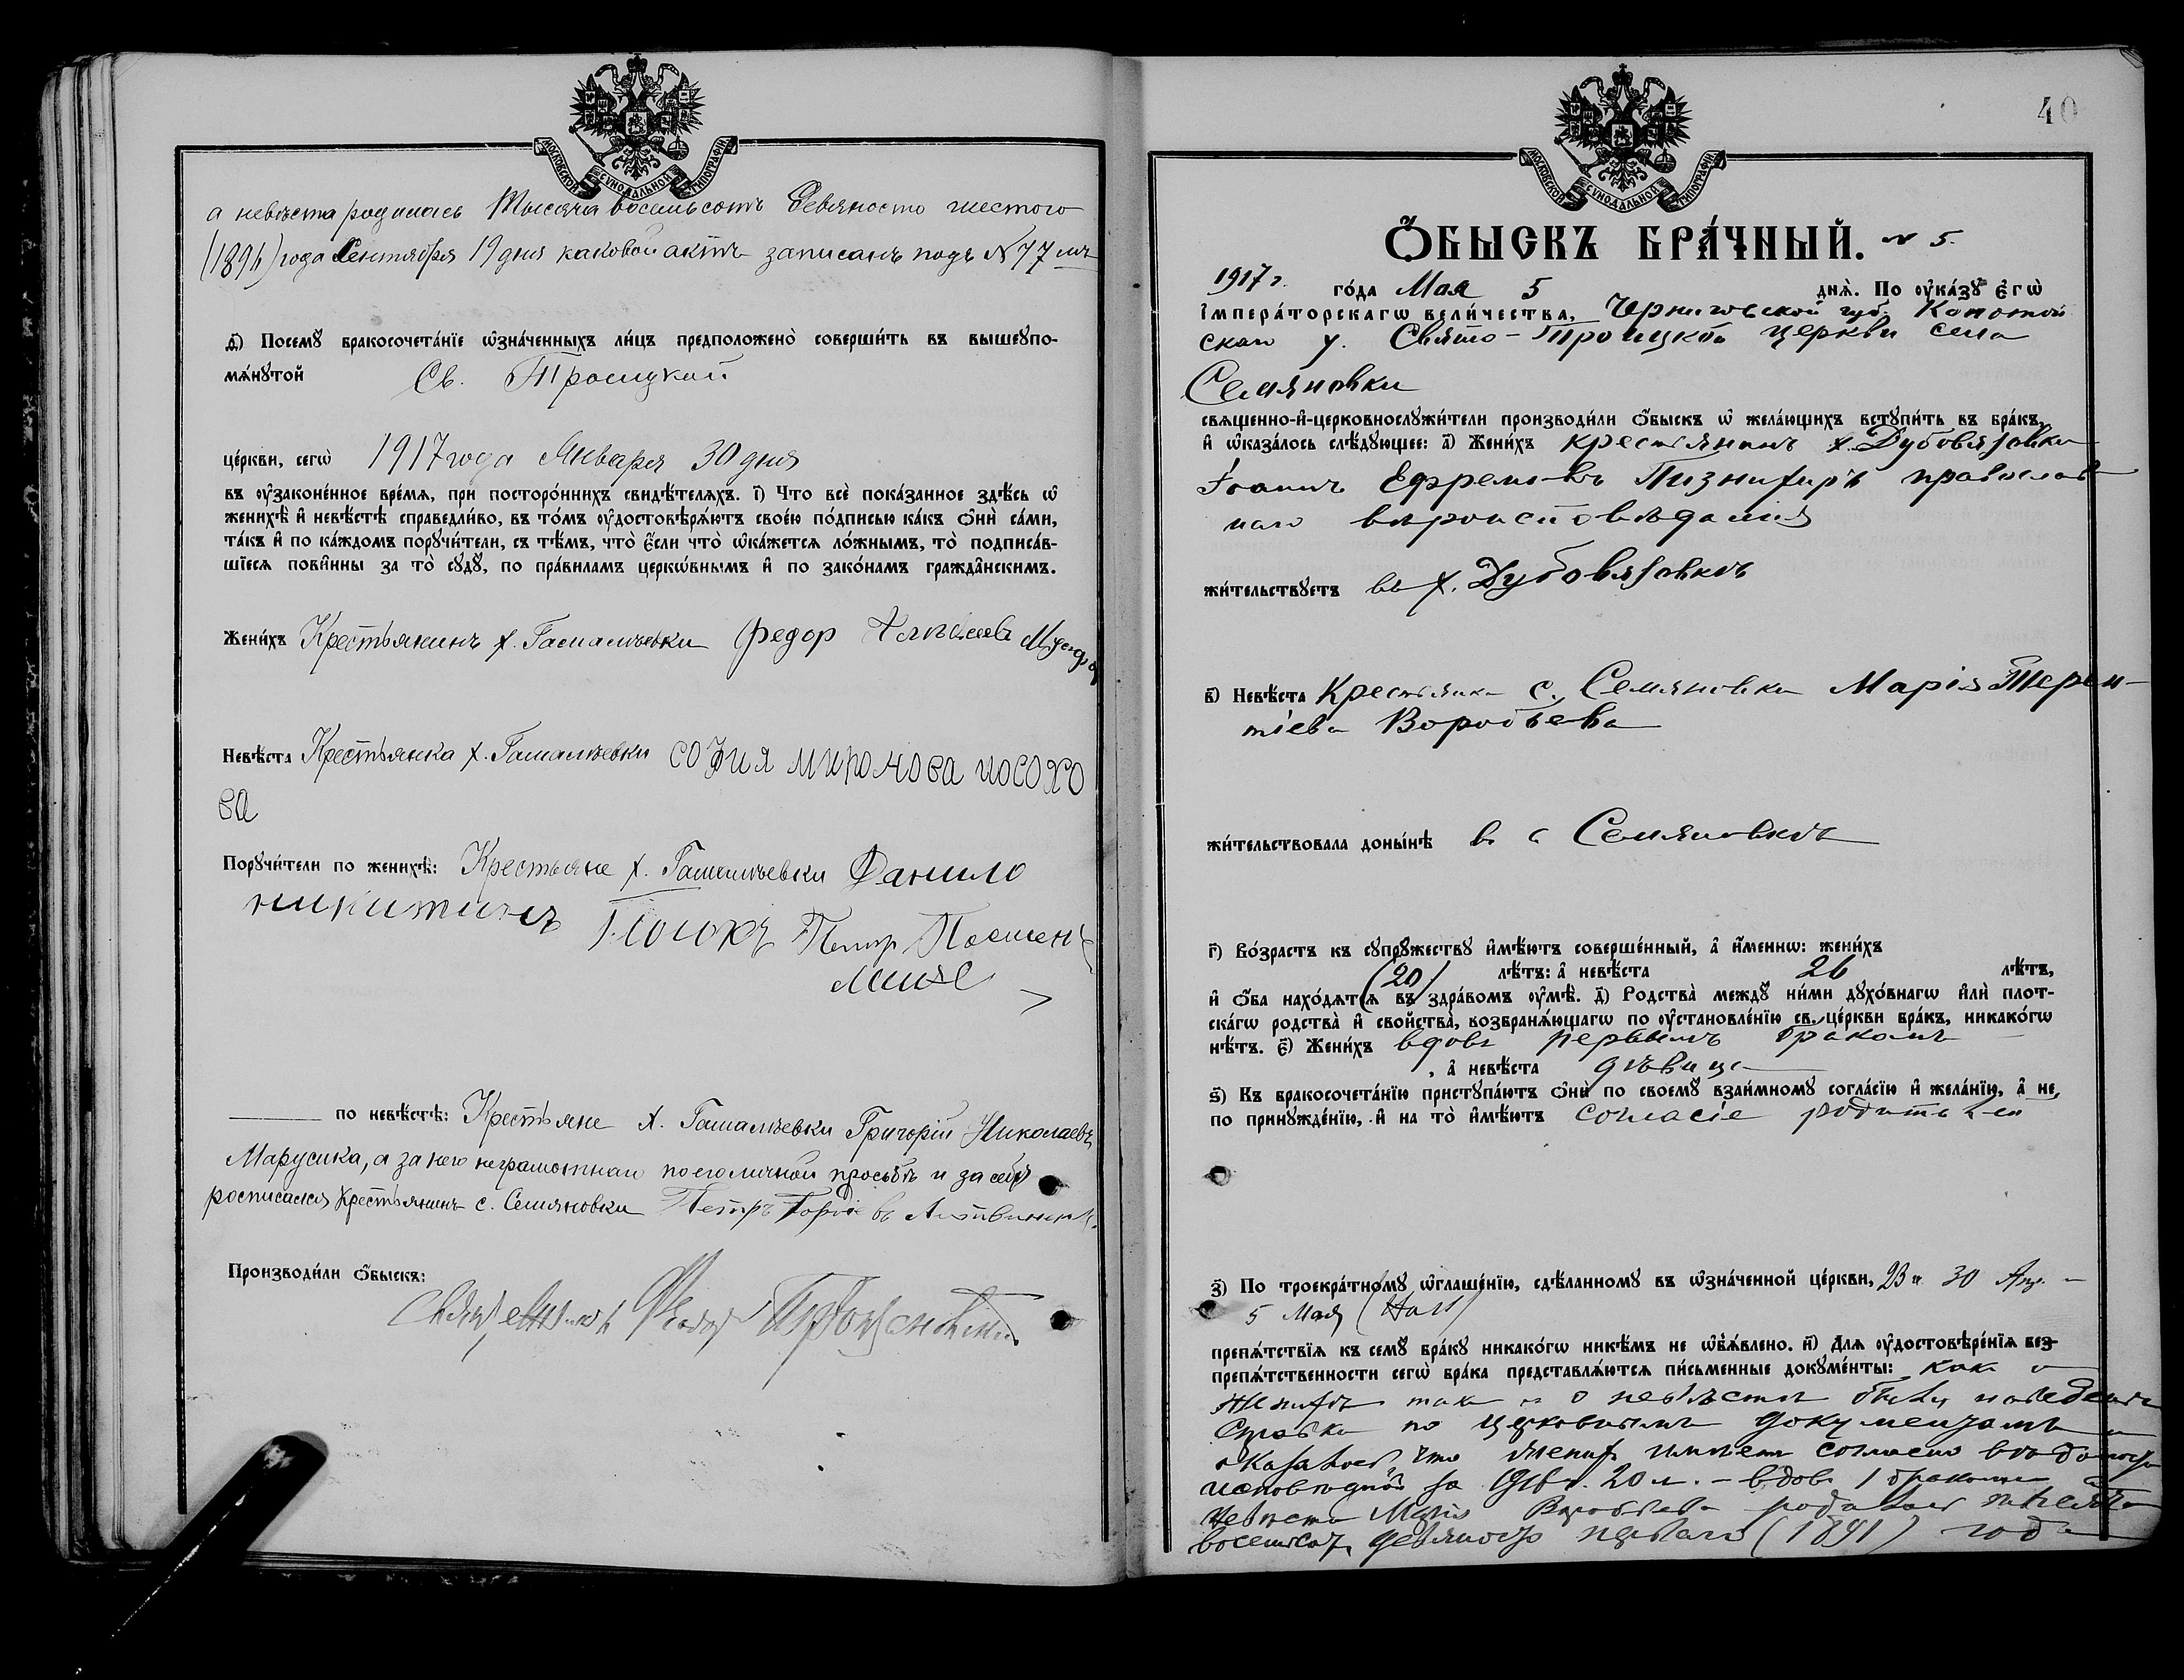 МОСКОВСКОЙ СѴНОДАЛЬНОЙ ТИПОГРАФІИ
а невѣста родилась Тысяча восемьсотъ девяносто шестого
(1896) года Сентября 19 дня каковой актъ записанъ подъ № 77 мъ
Посемꙋ бракосочета́нїе ѡзна́ченныхъ ли́цъ предположено̀ соверши́ть въ вышеꙋпо-
мѧ́нꙋтой Св. Троицкой
це́ркви, сегѡ̀ 1917 года Января 30 дня
въ ᲂу҆законе́нное вре́мѧ, при посторо́ннихъ свидѣ́телѧхъ. і҃) Что всѐ пока́занное здѣ́сь ѡ҆
женихѣ̀ и҆ невѣ́стѣ справедли́во, въ то́мъ ᲂу҆достовѣрѧ́ютъ свое́ю по́дписью ка́къ ѻ҆нѝ са́ми,
та́къ и҆ по ка́ждомъ порꙋчи́тели, съ тѣ́мъ, что̀ є҆́сли что̀ ѡ҆ка́жетсѧ ло́жнымъ, то̀ подписа́в-
шїесѧ пови́нны за то̀ сꙋдꙋ̀, по пра́виламъ церко́внымъ и҆ по зако́намъ гражда́нскимъ.
Жени́хъ Крестьянинъ х. Гамалѣевки федор
Невѣ́ста Крестьянка х. Гамалѣевки софия миронова носохо
ва
Порꙋчи́тели по женихѣ̀: Крестьяне х. Гамалѣевки Данило
никитинъ Петр
по невѣ́стѣ: Крестьяне х. Гамалѣевки Григорій Николаевъ
Марусика, а за него неграмотнаго по его личной просьбѣ и за себя
росписался Крестьянинъ с. Семяновки Петръ
Производи́ли ѻ҆́быскъ:
Священникъ
40
МОСКОВСКОЙ СѴНОДАЛЬНОЙ ТИПОГРАФІИ
Ѻ҆́БЫСКЪ БРА́ЧНЫЙ. № 5.
1917 г. го́да Мая 5 днѧ̀. По ᲂу҆ка́зꙋ є҆гѡ̀
і҆мпера́торскагѡ вели́чества, Черниговской губ. Конотоп
скаго у. Свято-Троицкой церкви села
Семяновки
свѧщенно-и҆-церковнослꙋжи́тели производи́ли ѻ҆́быскъ ѡ҆ жела́ющихъ встꙋпи́ть въ бра́къ,
и҆ ѡ҆каза́лось слѣ́дꙋющее: а҃) Жени́хъ крестьянинъ х. Дубовязовки
Іоаннъ Ефремовъ православ
наго вѣроисповѣданія
жи́тельствꙋетъ въ х. Дубовязовкѣ
в҃) Невѣ́ста Крестьянка с. Семяновки Марія Терен-
тіева Воробьева
жи́тельствовала доны́нѣ въ с Семяновкѣ
г҃) Во́зрастъ къ сꙋпрꙋ́жествꙋ и҆мѣ́ютъ соверше́нный, а҆ и҆́менно: жени́хъ
(20) лѣ́тъ: а҆ невѣ́ста 26 лѣ́тъ,
и҆ ѻ҆́ба нахо́дѧтсѧ въ здра́вомъ ᲂу҆мѣ̀. д҃) Родства̀ междꙋ̀ ни́ми дꙋхо́внагѡ и҆лѝ плот-
ска́гѡ родства̀ и҆ сво́йства̀, возбранѧ́ющагѡ по ᲂу҆становле́нїю св. це́ркви бра́къ, никако́гѡ
нѣ́тъ. є҃) Жени́хъ вдовъ первымъ бракомъ
, а҆ невѣ́ста дѣвица
ѕ҃) Къ бракосочета́нїю пристꙋпа́ютъ ѻ҆нѝ по своемꙋ̀ взаи́мномꙋ согла́сїю и҆ жела́нїю, а҆ не
по принꙋжде́нїю, и҆ на то̀ и҆мѣ́ютъ согласіе родителей
з҃) По троекра́тномꙋ ѡ҆глаше́нїю, сдѣ́ланномꙋ въ ѡ҆зна́ченной це́ркви, 23 и 30 Апр.
5 Мая
препѧ́тствїѧ къ семꙋ̀ бра́кꙋ никако́гѡ никѣ́мъ не ѡ҆б̾ѧ́влено. и҃) Длѧ ᲂу҆достовѣре́нїѧ без-
препѧ́тственности сегѡ̀ бра́ка представлѧ́ютсѧ пи́сьменные докꙋме́нты: какъ о
женихѣ такъ и о невѣстѣ были наведены
справки по церковнымъ документамъ и
оказалось что женихъ имѣетъ согласно
исповѣдной за 1916 г. 20 л. - вдовъ 1 бракомъ а
невѣста Марія Воробьева родилась тысяча
восемьсотъ девяносто перваго (1891) года